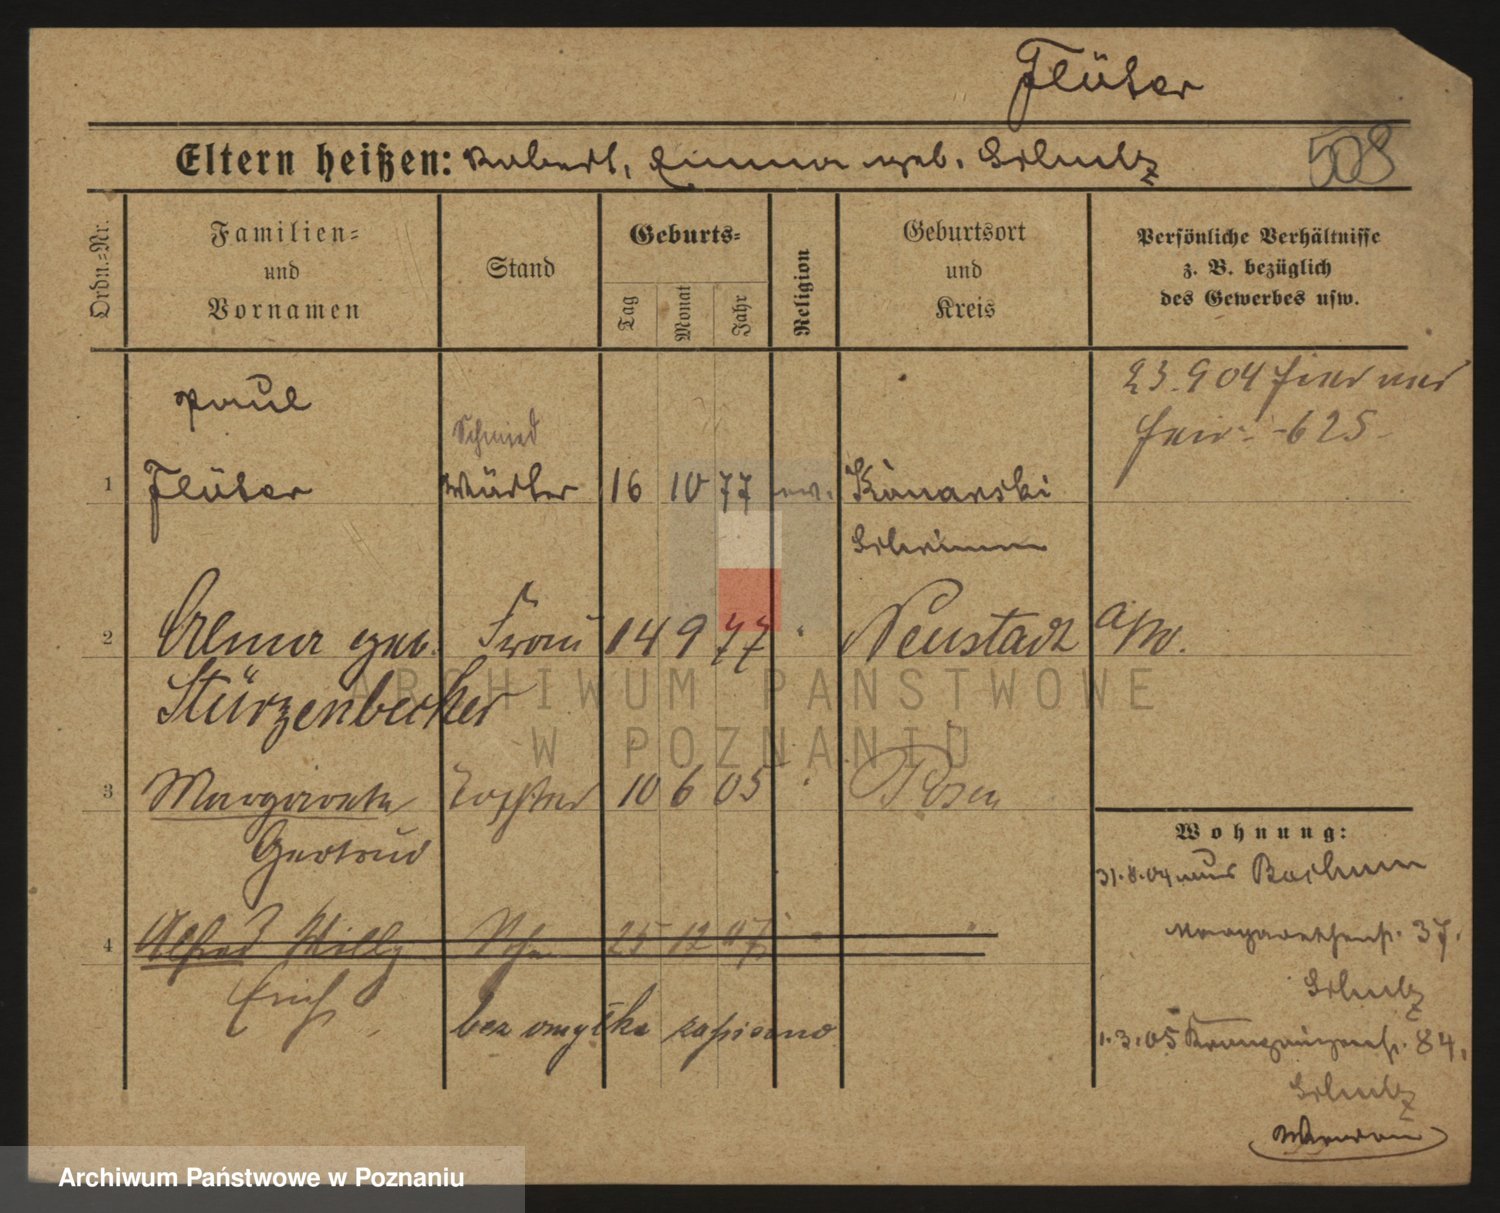 Flüter
Eltern heißen: Robert, Emma geb. Schulz
Ordn.=Nr.
Familien=
und
Vornamen
Stand
Geburts=
Tag
Monat
Jahr
Religion
Geburtsort
und
Kreis
Persönliche Verhältnisse
z. B. bezüglich
des Gewerbes usw.
Paul
Schmied
23.9 04
625
1 Flüter 16 10 77 ev. Konarski
Schrimm
2 Alma geb. Frau 14 9 77 " Neustadt a/W.
Stürzenbecker
3 Margarete Tochter 10 6 05 " Posen
Gertrud
Wohnung:
31.8.04 aus Bochum
4 Alfred Willy 25 12 07
Margarethenstr. 37.
Erich
Schulz
bez omyłka zapisano
1.3.05 Kronprinzenstr. 84.
Schulz
ARCHIWUM PAŃSTWOWE
W POZNANIU
Archiwum Państwowe w Poznaniu